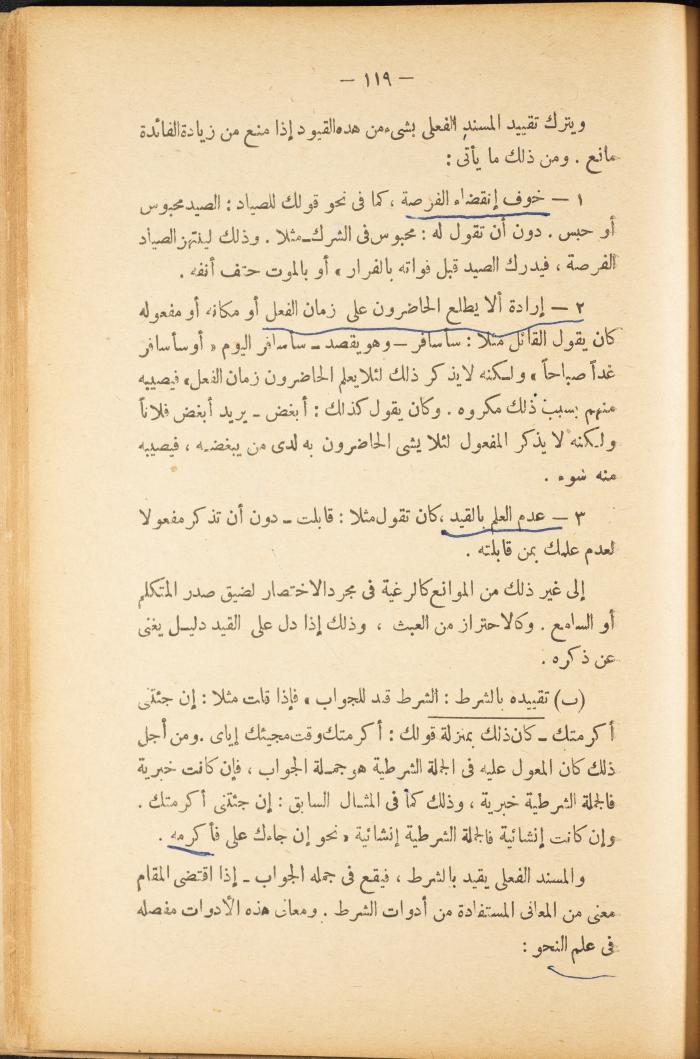 — ١١٩ —
ويترك تقييد المسند الفعلى بشىء من هذه القيود إذا منع من زيادة الفائدة
مانع . ومن ذلك ما يأتى :
١ — خوف إنقضاء الفرصة ، كما فى نحو قولك للصياد : الصيد محبوس
أو حبس . دون أن تقول له : محبوس فى الشرك ـ مثلا . وذلك لينتهز الصياد
الفرصة ، فيدرك الصيد قبل فواته بالفرار ، أو بالموت حتف أنفه .
٢ — إرادة ألا يطلع الحاضرون على زمان الفعل أو مكانه أو مفعوله
كان يقول القائل مثلا : سأسافر — وهو يقصد ـ سأسافر اليوم ، أو سأسافر
غداً صباحاً ، ولكنه لا يذكر ذلك لئلا يعلم الحاضرون زمان الفعل ، فيصيبه
منهم بسبب ذلك مكروه . وكان يقول كذلك : أبغض ـ يريد أبغض فلاناً
ولكنه لا يذكر المفعول لئلا يشى الحاضرون به لدى من يبغضه ، فيصيبه
منه سوء .
٣ — عدم العلم بالقيد ، كان تقول مثلا : قابلت ـ دون أن تذكر مفعولا
لعدم علمك بمن قابلته .
إلى غير ذلك من الموانع كالرغبة فى مجرد الاختصار لضيق صدر المتكلم
أو السامع . وكالاحتراز من العبث ، وذلك إذا دل على القيد دليل يغنى
عن ذكره .
(ب) تقييده بالشرط : الشرط قيد للجواب ، فإذا قلت مثلا : إن جئتنى
أكرمتك ـ كان ذلك بمنزلة قولك : أكرمتك وقت مجيئك إياى . ومن أجل
ذلك كان المعول عليه فى الجملة الشرطية هو جملة الجواب ، فإن كانت خبرية
فالجملة الشرطية خبرية ، وذلك كما فى المثال السابق : إن جئتنى أكرمتك .
وإن كانت إنشائية فالجملة الشرطية إنشائية ، نحو إن جاءك على فأكرمه .
والمسند الفعلى يقيد بالشرط ، فيقع فى جمله الجواب ـ إذا اقتضى المقام
معنى من المعانى المستفادة من أدوات الشرط . ومعانى هذه الأدوات مفصله
فى علم النحو :